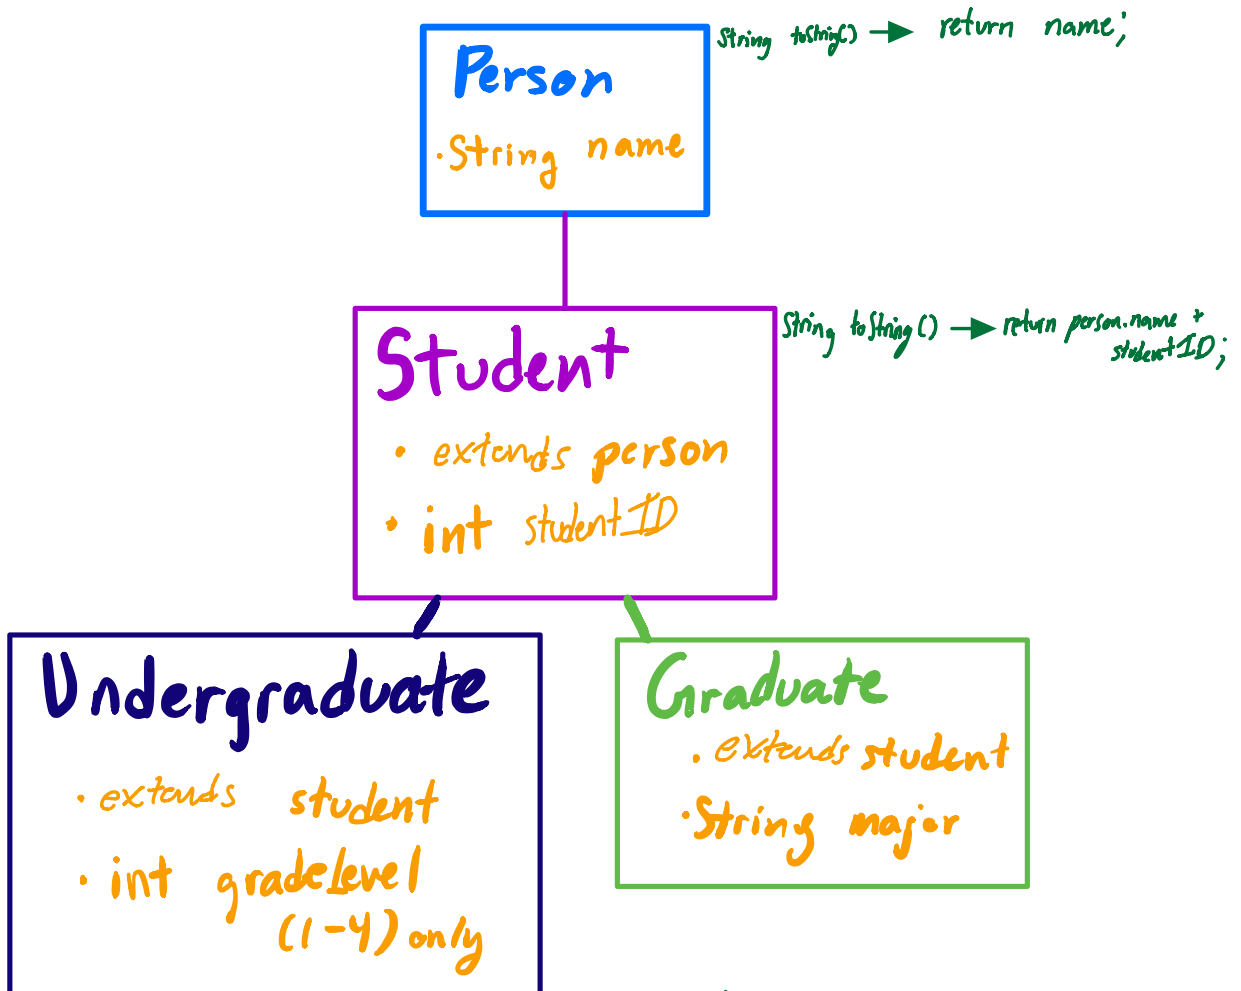 Person
· String name
String toString() → return name;
Student
• extends person
• int studentID
String toString() → return person.name +
studentID;
Undergraduate
• extends student
• int gradelevel
(1-4) only
Graduate
• extends student
• String major